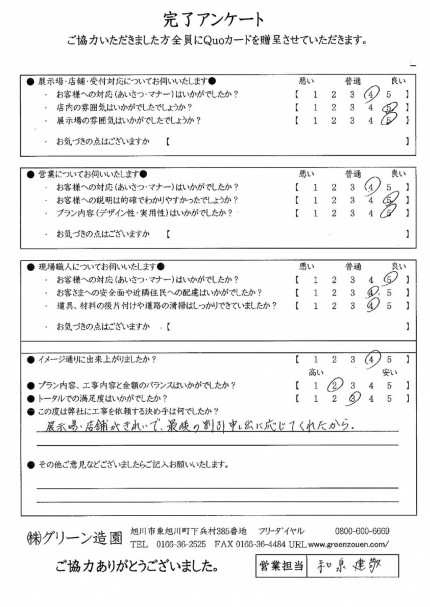 完了アンケート
ご協力いただきました方全員にQuoカードを贈呈させていただきます。
● 展示場・店舗・受付対応についてお伺いいたします● 悪い 普通 良い
・ お客様への対応(あいさつ・マナー)はいかがでしたか？ 【 1 2 3 4 5 】
・ 店内の雰囲気はいかがでしたでしょうか？ 【 1 2 3 4 5 】
・ 展示場の雰囲気はいかがでしたか？ 【 1 2 3 4 5 】
・ お気づきの点はございますか 【 】
● 営業についてお伺いいたします● 悪い 普通 良い
・ お客様への対応(あいさつ・マナー)はいかがでしたか？ 【 1 2 3 4 5 】
・ お客様への説明は的確でわかりやすかったでしょうか？ 【 1 2 3 4 5 】
・ プラン内容(デザイン性・実用性)はいかがでしたか？ 【 1 2 3 4 5 】
・ お気づきの点はございますか 【 】
● 現場職人についてお伺いいたします● 悪い 普通 良い
・ お客様への対応(あいさつ・マナー)はいかがでしたか？ 【 1 2 3 4 5 】
・ お客さまへの安全面や近隣住民への配慮はいかがでしたか？ 【 1 2 3 4 5 】
・ 道具、材料の後片付けや道路の清掃はしっかりできていましたか？ 【 1 2 3 4 5 】
・ お気づきの点はございますか 【 】
● イメージ通りに出来上がりましたか？ 【 1 2 3 4 5 】
高い 安い
● プラン内容、工事内容と金額のバランスはいかがでしたか？ 【 1 2 3 4 5 】
● トータルでの満足度はいかがでしたか？ 【 1 2 3 4 5 】
● この度は弊社に工事を依頼する決め手は何でしたか？
展示場・店舗がきれいで、最後の割引申し出に応じてくれたから。
● その他ご意見などございましたらご記入お願いいたします。
㈱グリーン造園 旭川市東旭川町下兵村385番地 フリーダイヤル 0800-600-6669
TEL 0166-36-2525 FAX 0166-36-4484 URL www.greenzouen.com/
ご協力ありがとうございました。 営業担当 和泉 建敬